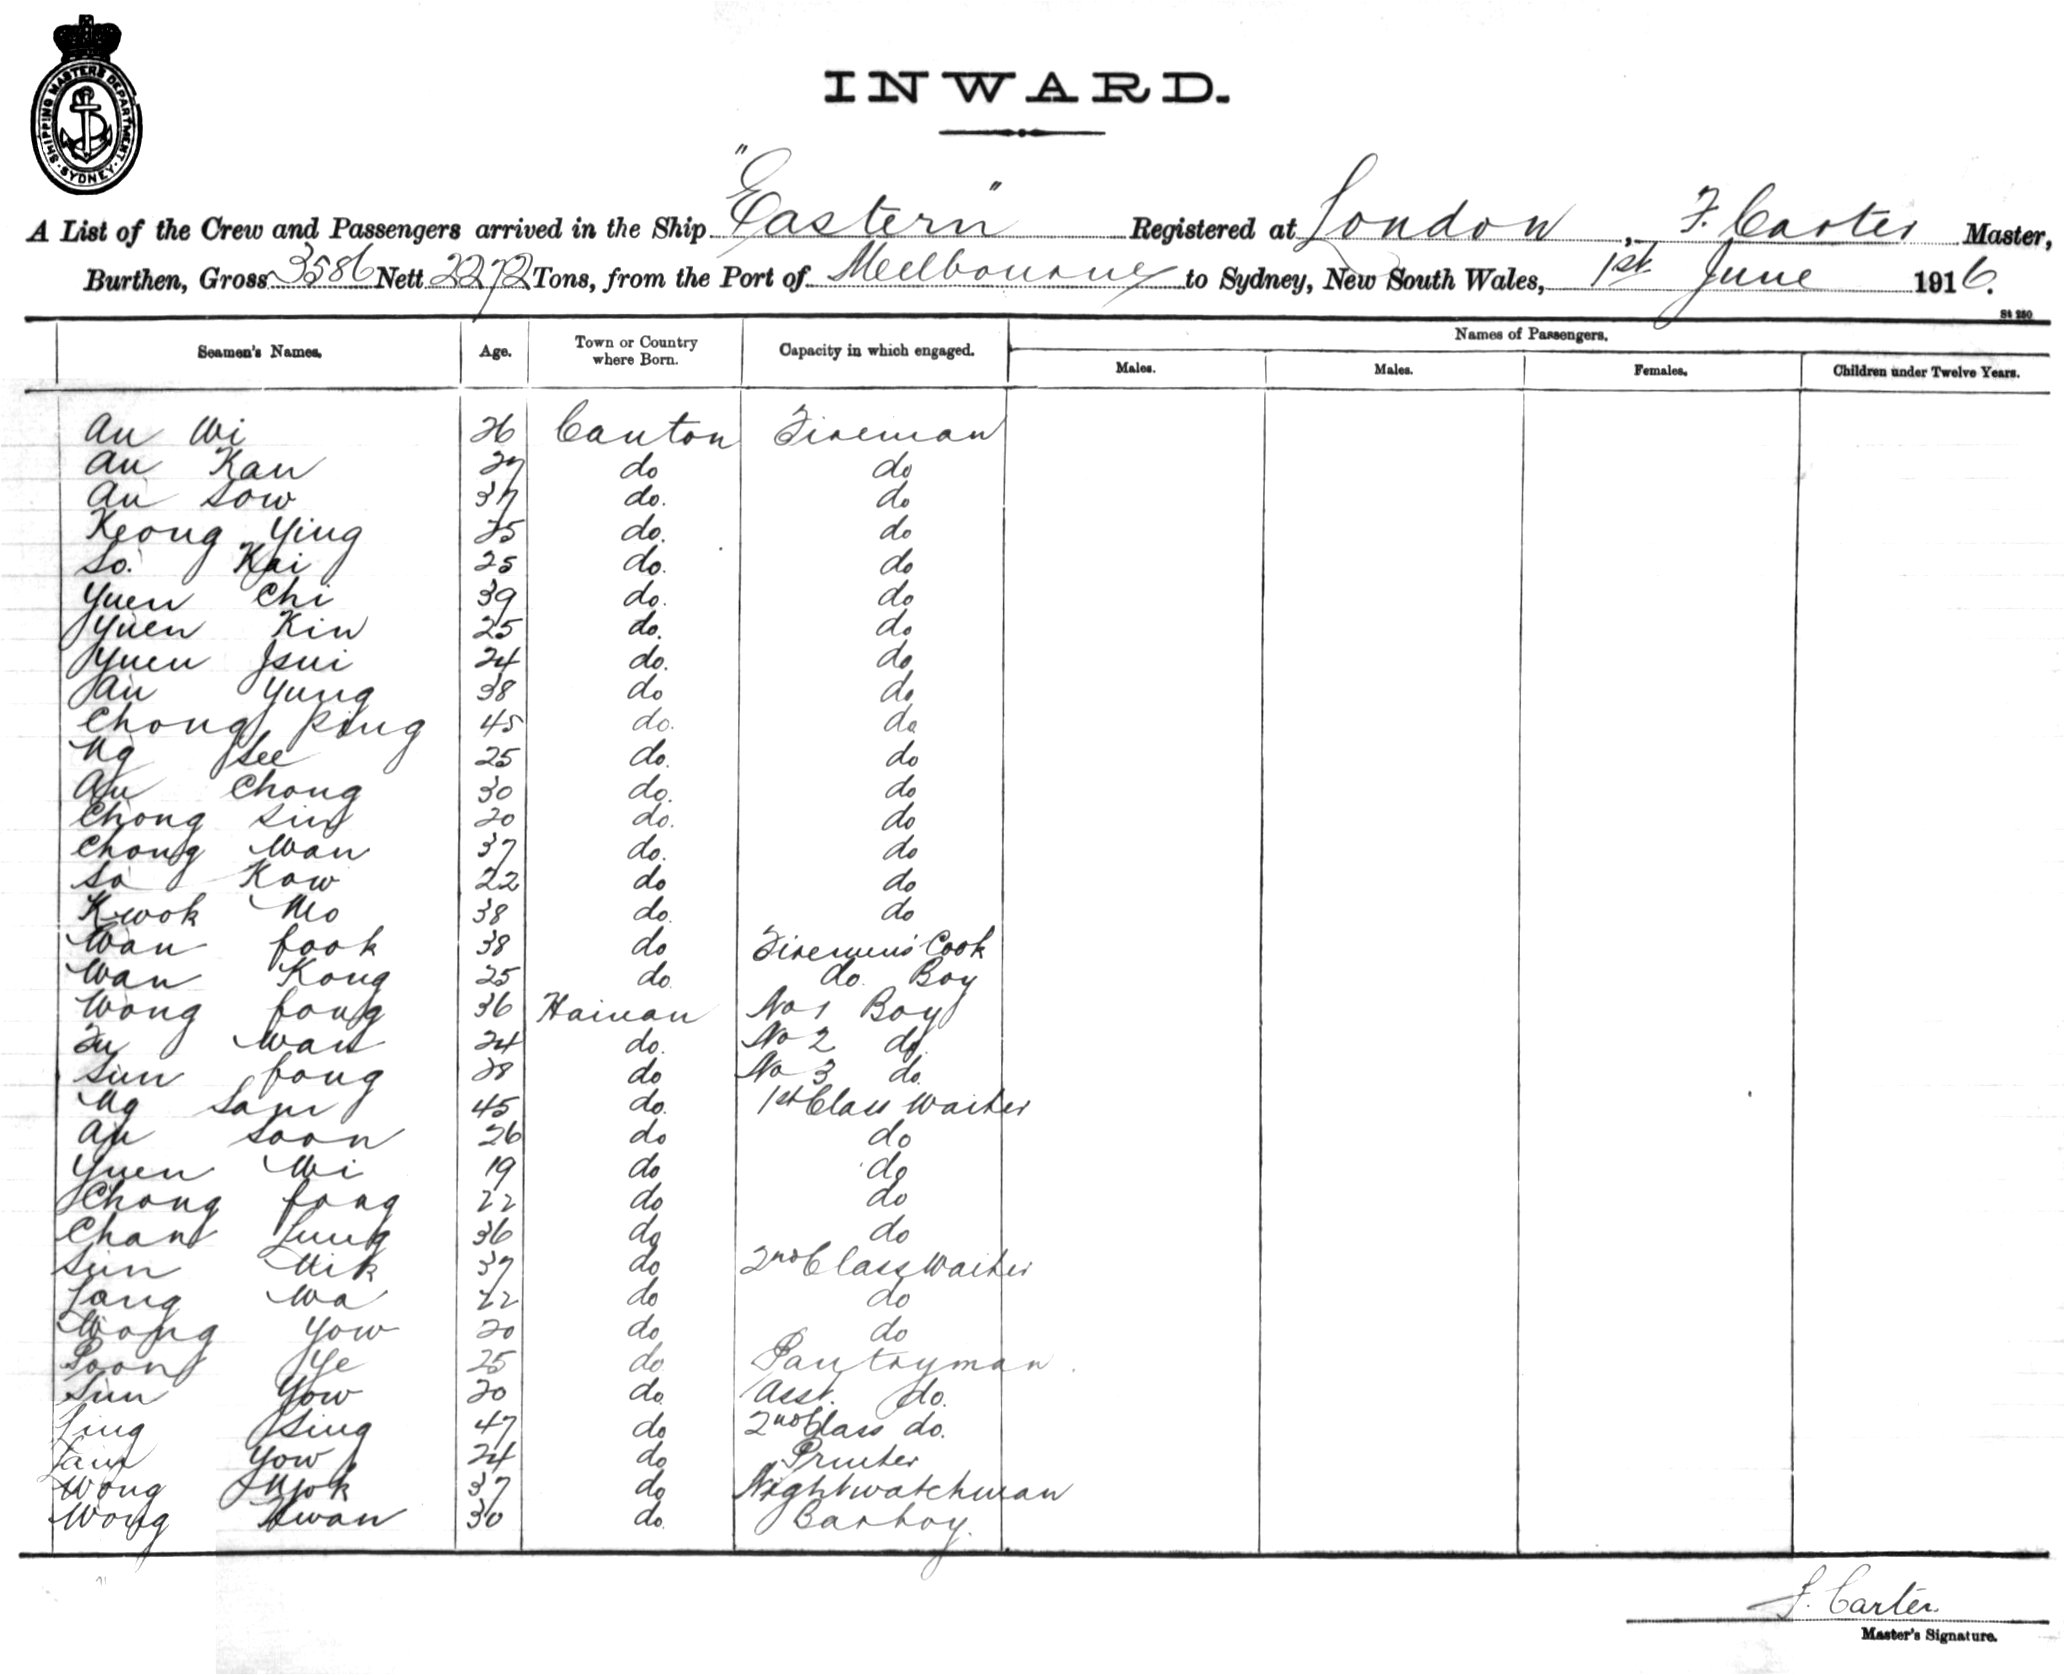 SHIPPING MASTERS DEPARTMENT SYDNEY
INWARD.
A List of the Crew and Passengers arrived in the Ship "Eastern" Registered at London, F. Carter Master,
Burthen, Gross 3586 Nett 2272 Tons, from the Port of Melbourne to Sydney, New South Wales, 1st June 1916.
St 280
Seamen's Names. Age. Town or Country where Born. Capacity in which engaged. Names of Passengers.
Males. Males. Females. Children under Twelve Years.
Au Wi 26 Canton Fireman
Au Kan 27 do do
Au Sow 37 do. do
Keong Ying 25 do. do
So. Kai 25 do. do
Yuen Chi 39 do. do
Yuen Kin 25 do. do
Yuen Tsui 24 do. do
Au Yung 38 do do
Chong Ping 45 do. do
Ng See 25 do. do
Au Chong 30 do. do
Chong Sin 20 do. do
Chong Wan 37 do. do
So Kow 22 do do
Kwok Mo 38 do. do
Wan fook 38 do Firemen's Cook
Wan Kong 25 do. do. Boy
Wong fong 36 Hainan No 1 Boy
Fu Wan 24 do. No 2 do.
Sun fong 28 do No 3 do.
Ng Sam 45 do. 1st Class Waiter
Au Soon 26 do do
Yuen Mi 19 do do
Chong fong 22 do do
Chan Lung 36 do do
Sun Mik 37 do 2nd Class Waiter
Long Wa 22 do do
Wong Yow 20 do do
Soon Ye 25 do Pantryman.
Sun Yow 20 do. Asst. do.
Ling Sing 47 do 2nd Class do.
Lam Yow 24 do Printer
Wong 37 do Nightwatchman
Wong Kwan 30 do. Barboy.
F. Carter.
Master's Signature.